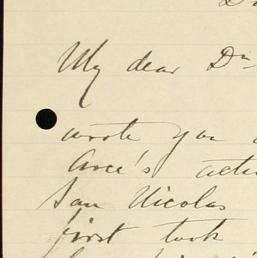 My dear Dr
wrote you
Arce's
San Nicolas
first took